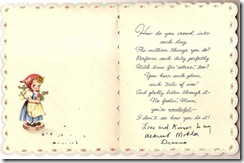 How do you crowd into
each day
The million things you do?
Perform each duty perfectly
With time for "extras," too?
You hear each plan,
each "tale of woe"
And gladly listen through it—
No foolin', Mom,
you're wonderful—
I don't see how you do it!
Love and Kisses to my
dearest Mother
Deanna